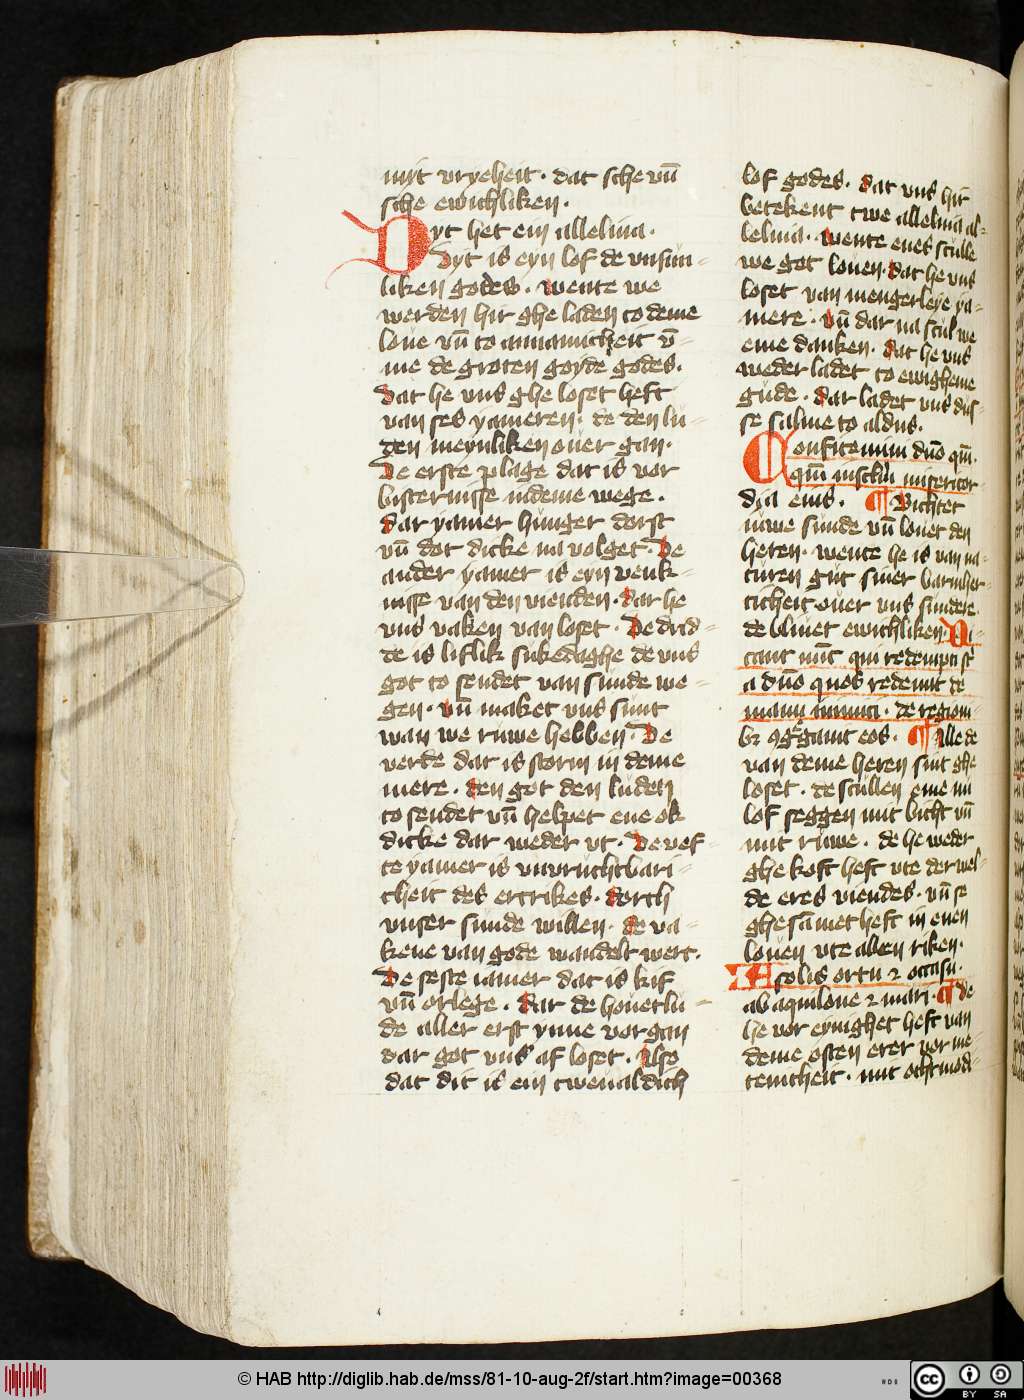 myt vryeheit · dat sche vn̄
sche ewichliken ·
Dyt het ein alleluia ·
Dyt is eyn lof de vnsun-
liken godes · wente we
werden hir ghe laden to deme
loue vn̄ to annamicheit v̄-
me de groten goyde godes ·
dat he vns ghe loset heft
van ses yameren · de den lu-
den meynliken ouer gan ·
De erste plage dat is vor
bisternisse in deme wege ·
dar yamer hunger dorst
vn̄ dot dicke na volget · De
ander yamer is eyn venk-
nisse van den vienden · dar he
vns vaken van loset · De drid-
de is liflik sukedaghe de vns
got to sendet van sunde we-
gen · vn̄ maket vns sunt
wan we ruwe hebben · De
verde dat is storm in deme
mere · den got den luden
to sendet vn̄ helpet ene ok
dicke dar weder vt · De vef-
te yamer is vnvruchtbari-
cheit des ertrikes · dorch
vnser sunde willen · de va-
kene van gode wandelt wert ·
De seste iamer dat is kif
vn̄ orlege · dar de houetlu-
de aller erst ynne vorgan
dar got vns af loset · Also
dat dit is ein tweualdich
lof godes · dat vns hir
betekent twe alleluia al-
leluia · wente enes sculle
we got louen · dat he vns
loset van mengerleye ya-
mere · vn̄ dar na scul we
eme danken · dat he vns
weder ladet to ewigheme
gude · dar ladet vns dus-
se salme to aldus ·
Confitemini dn̄o qm̄ ·
qm̄ in sclm̄ misericor-
dia eius · ¶ Bichtet
iuwe sunde vn̄ louet den
heren · wente he is van na-
turen gut siner barmher-
ticheit ouer vns sundere ·
de bliuet ewichliken · Di-
cant nūc qui redempti st̄
a dn̄o quos redemit de
manu inimici · de region-
bꝫ ꝯgͣgauit eos · ¶ Alle de
van deme heren sint ghe
loset · de scullen eme nu
lof seggen mit bicht vn̄
mit ruwe · de he weder
ghe koft heft vte der wel-
de eres viendes · vn̄ se
ghe sāmet heft in enen
louen vte allen riken ·
A solis ortu ⁊ occasu ·
ab aquilone ⁊ mari · ¶ de
he vor eynighet heft van
deme osten erer vor me-
tenicheit · mit othmod-
© HAB http://diglib.hab.de/mss/81-10-aug-2f/start.htm?image=00368
cc BY SA